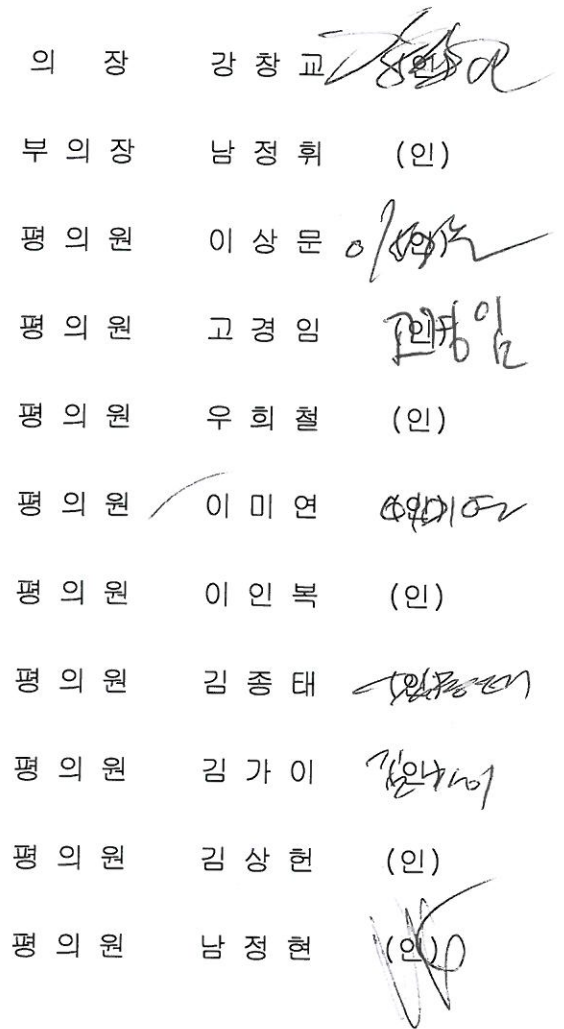 의 장 강 창 교 (인)
부 의 장 남 정 휘 (인)
평 의 원 이 상 문 (인)
평 의 원 고 경 임 (인) 고경임
평 의 원 우 희 철 (인)
평 의 원 이 미 연 (인) 이미연
평 의 원 이 인 복 (인)
평 의 원 김 종 태 (인)
평 의 원 김 가 이 (인) 김가이
평 의 원 김 상 헌 (인)
평 의 원 남 정 현 (인)